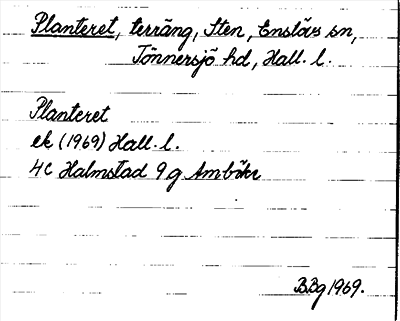 Planteret, terräng, Sten, Enslövs sn,
Tönnersjö hd, Hall. l.
Planteret
ek (1969) Hall. l.
4C Halmstad 9 g Ambökr
BBg 1969.